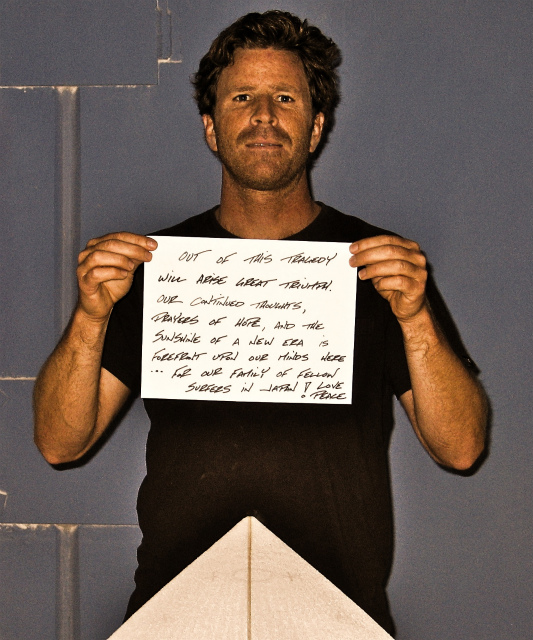 OUT OF THIS TRAGEDY
WILL ARISE GREAT TRIUMPH.
OUR CONTINUED THOUGHTS,
PRAYERS OF HOPE, AND THE
SUNSHINE OF A NEW ERA IS
FOREFRONT UPON OUR MINDS HERE
... FOR OUR FAMILY OF FELLOW
SURFERS IN JAPAN! LOVE
PEACE